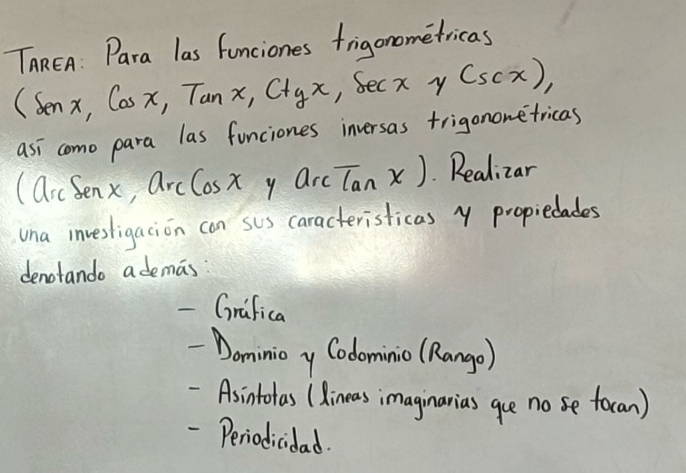 TAREA: Para las funciones trigonométricas
(Sen x, Cos x, Tan x, Ctg x, Sec x y Csc x),
así como para las funciones inversas trigonométricas
(arc Sen x, arc Cos x y arc Tan x). Realizar
una investigación con sus características y propiedades
denotando además:
- Gráfica
- Dominio y Codominio (Rango)
- Asíntotas (líneas imaginarias que no se tocan)
- Periodicidad.